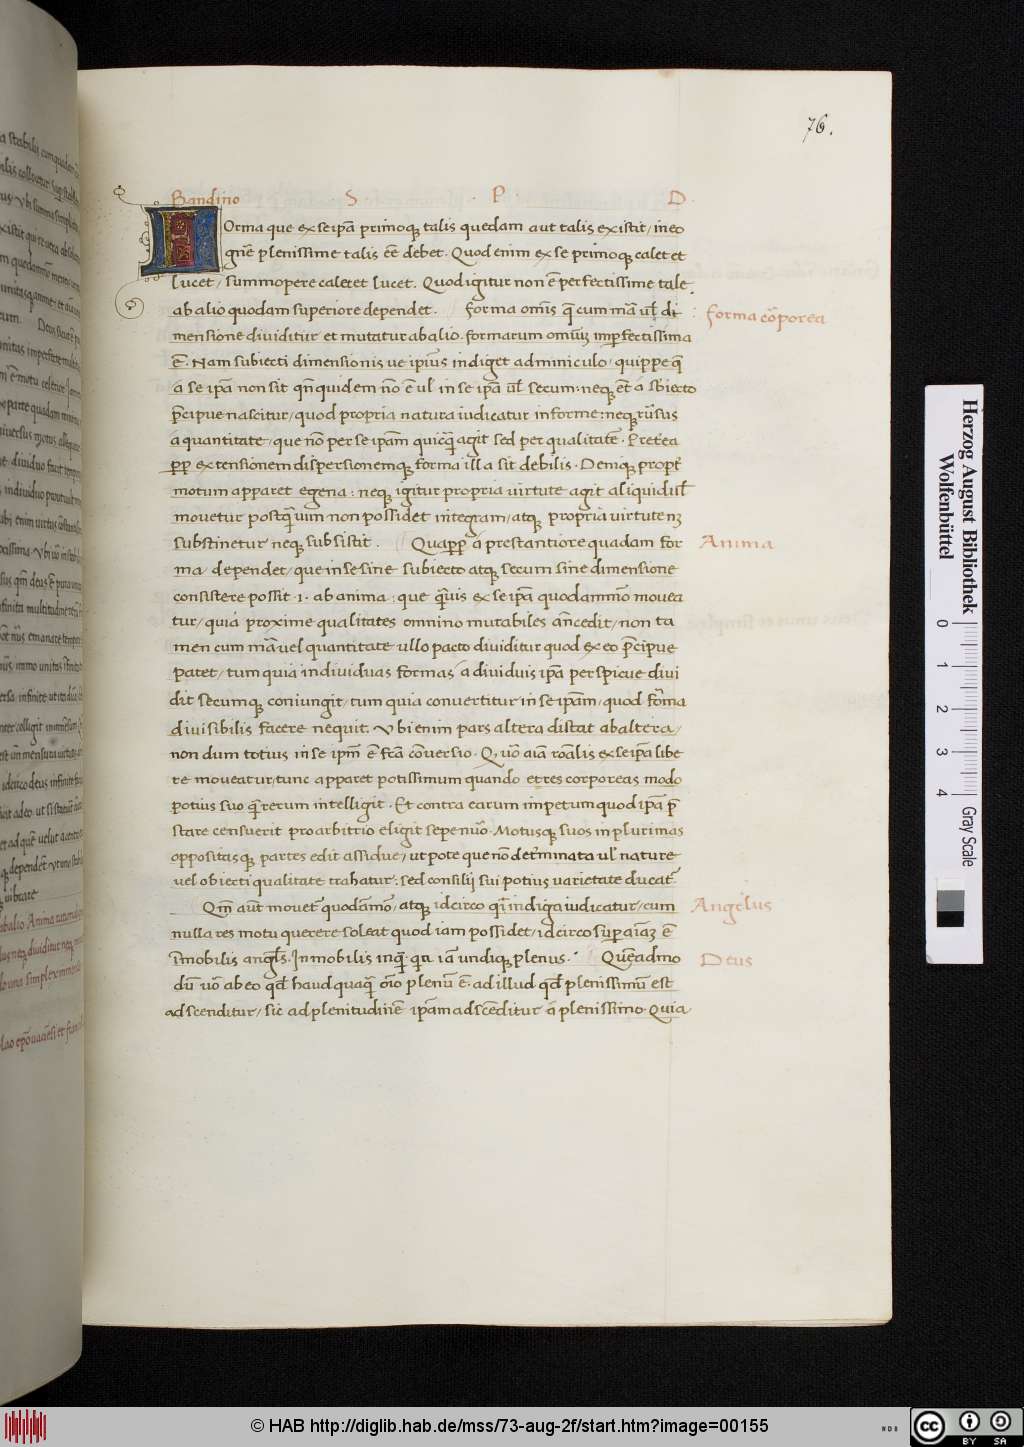 76.
Bandino S. P. D.
Forma que ex se ipā primoq; talis quedam aut talis existit, in eo
gnīe plenissime talis eē debet. Quod enim ex se primoq; calet et
lucet, summopere calet et lucet. Quod igitur non ē perfectissime tale,
ab alio quodam superiore dependet. forma omīs q̄ cum mā ul̄ di
forma cōporea
mensione dividitur et mutatur ab alio, formarum omīuȝ imperfectissima
ē. Nam subiecti dimensionis ve ipīus indiget adminiculo, quippe q̄
a se ipā non sit qn̄ quidem nō ē ul̄ in se ipā ul̄ secum: neq; ēt a sbiecto
p̄cipue nascitur, quod propria natura iudicatur informe: neq; rūsus
a quantitate, que nō per se ipām quicq̄ agit sed per qualitatē. Preterea
ꝓp̄ extensionem dispersionemq; forma illa sit debilis. Deniq; propt̄
motum apparet egena: neq; igitur propria virtute agit aliquid ul̄
movetur postq̄ vim non possidet integram, atq; propria virtute nȝ
substinetur neq; subsistit. Quaꝓp̄ a prestantiore quadam for
Anima
ma dependet, que in se sine subiecto atq; secum sine dimensione
consistere possit .i. ab anima: que q̄vis ex se ipā quodammō movea
tur, quia proxime qualitates omnino mutabiles an̄cedit, non ta
men cum mā vel quantitate ullo pacto dividitur quod ex eo p̄cipue
patet, tum quia individuas formas a dividuis ipā perspicue divi
dit secumq; coniungit, tum quia convertitur in se ipam, quod foma
divisibilis facere nequit. Vbi enim pars altera distat ab altera,
non dum totius in se ipm̄ ē fcā cōversio. Q, vō aīa rōālis ex se ipā libe
re moveatur, tunc apparet potissimum quando et res corporeas modo
potius suo q̄ rerum intelligit. Et contra earum impetum quod ipā p̄
stare censuerit pro arbitrio eligit sepenūo. Motusq; suos in plurimas
oppositasq; partes edit assidue, ut pote que nō det̄minata ul̄ nature
vel obiecti qualitate trahatur: sed consilij sui potius varietate ducat̄.
Qm̄ aut̄ movet̄ quodāmō, atq; idcirco q̄i indiga iudicatur, cum
Angelus
nulla res motu querere soleat quod iam possidet, idcirco sup aīaȝ ē
īmobilis angl̄s. Inmobilis inq̄: qn̄ iā undiq; plenus. Quēadmo
Deus
dū vō ab eo qd̄ haud quaq̄ oīo plenū ē, ad illud qd̄ plenissimū est
adscenditur, sic ad plenitudinē ipām adscēditur a plenissimo. Quia
Herzog August Bibliothek
Wolfenbüttel
0 1 2 3 4
Gray Scale
© HAB http://diglib.hab.de/mss/73-aug-2f/start.htm?image=00155
WDB
cc BY SA